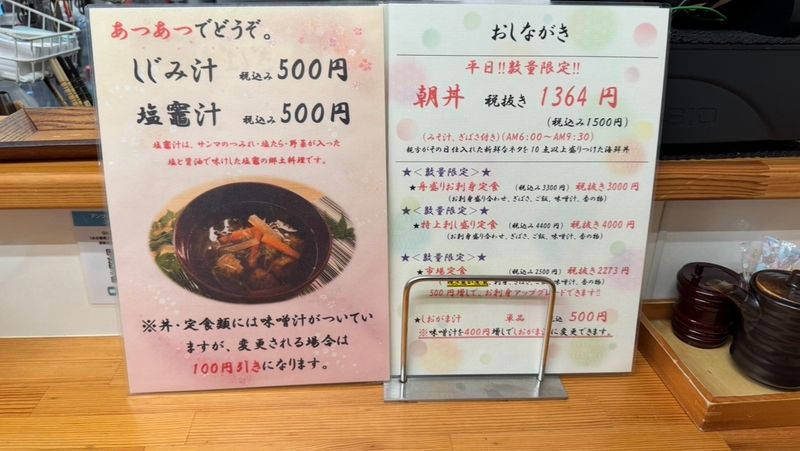 あつあつでどうぞ。
しじみ汁 税込み500円
塩竈汁 税込み500円
塩竈汁は、サンマのつみれ・塩たら・野菜が入った
塩と醤油で味付した塩竈の郷土料理です。
※丼・定食類には味噌汁がついてい
ますが、変更される場合は
100円引きになります。
おしながき
平日!!数量限定!!
朝丼 税抜き 1364円
(税込み1500円)
(みそ汁、ぎばさ付き)(AM6:00～AM9:30)
親方がその日仕入れた新鮮なネタを10点以上盛りつけた海鮮丼
★<数量限定>★
★舟盛りお刺身定食 (税込み3300円) 税抜き3000円
(お刺身盛り合わせ、ぎばさ、ご飯、味噌汁、香の物)
★<数量限定>★
★特上刺し盛り定食 (税込み4400円) 税抜き4000円
(お刺身盛り合わせ、ぎばさ、ご飯、味噌汁、香の物)
★<数量限定>★
★市場定食 (税込み2500円) 税抜き2273円
刺身、ぎばさ、ご飯、味噌汁、香の物)
500円増しで、お刺身アップグレードできます!!
★しおがま汁 単品 税込み 500円
※味噌汁を400円増しでしおがま汁に変更できます。